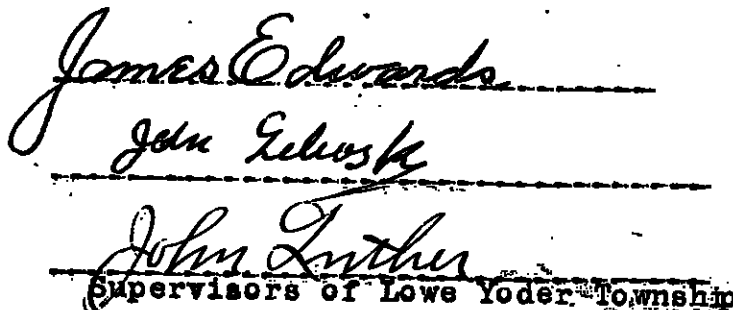 James Edwards
John
John Luther
Supervisors of Lowe Yoder Township